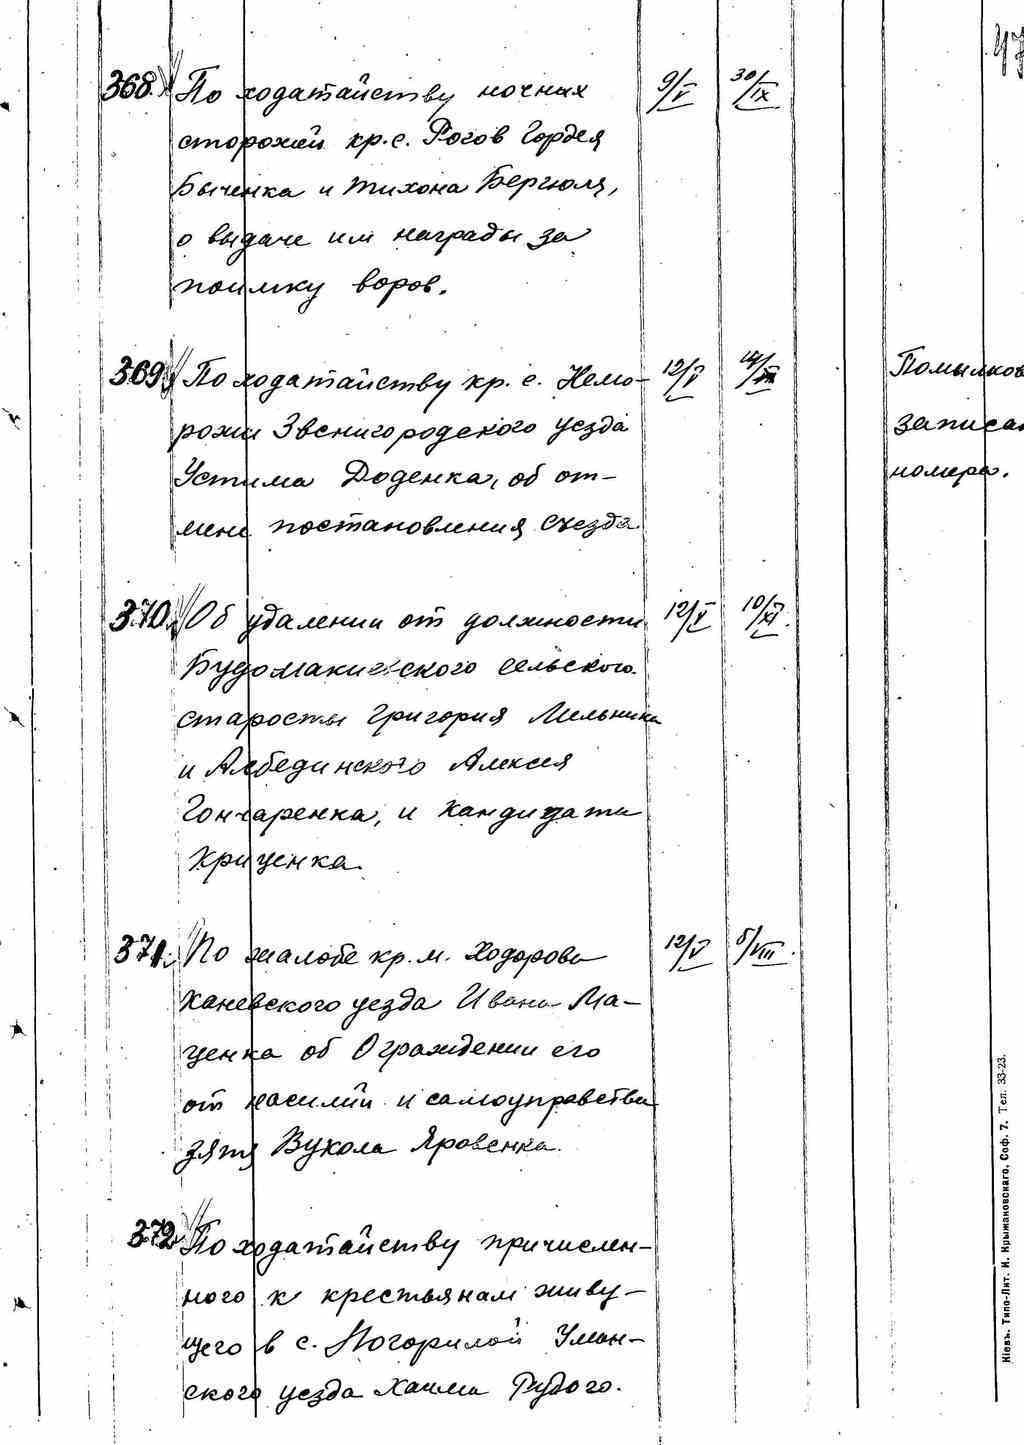 47
368. По ходатайству ночных 9/V 30/IX
сторожей кр. с. Рогов Гордея
Быченка и Тихона Бергюля,
о выдаче им награды за
поимку воров.
369. По ходатайству кр. с. Немо- 12/V Помылков
рожи Звенигородского уезда записан
Устима Доденка, об от- номера.
мене постановления съезда.
370. Об удалении от должности 12/V 10/XI.
Будомакиевского сельского
старосты Григория Мельника
и Лебединского Алексея
Гончаренка, и кандидата
Криценка.
371. По жалобе кр. м. Ходорова 12/V 5/VIII.
Каневского уезда Ивана Ма-
ценка об Ограждении его
от насилий и самоуправства
зятя Вукола Яровенка.
372. По ходатайству причислен-
ного к крестьянам живу-
щего в с. Погорилой Уман-
ского уезда Хаима Рудого.
Кіевъ. Типо-Лит. И. Крыжановскаго, Соф. 7. Тел. 33-23.